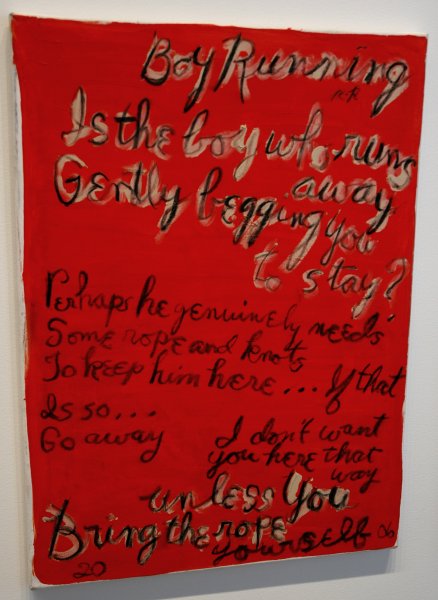 Boy Running
R.R
Is the boy who runs
away
Gently begging you
to stay?
Perhaps he genuinely needs
Some rope and knots
To keep him here... If that
Is so...
Go away
I don't want
you here that
way
unless You
Bring the rope
yourself
20
06